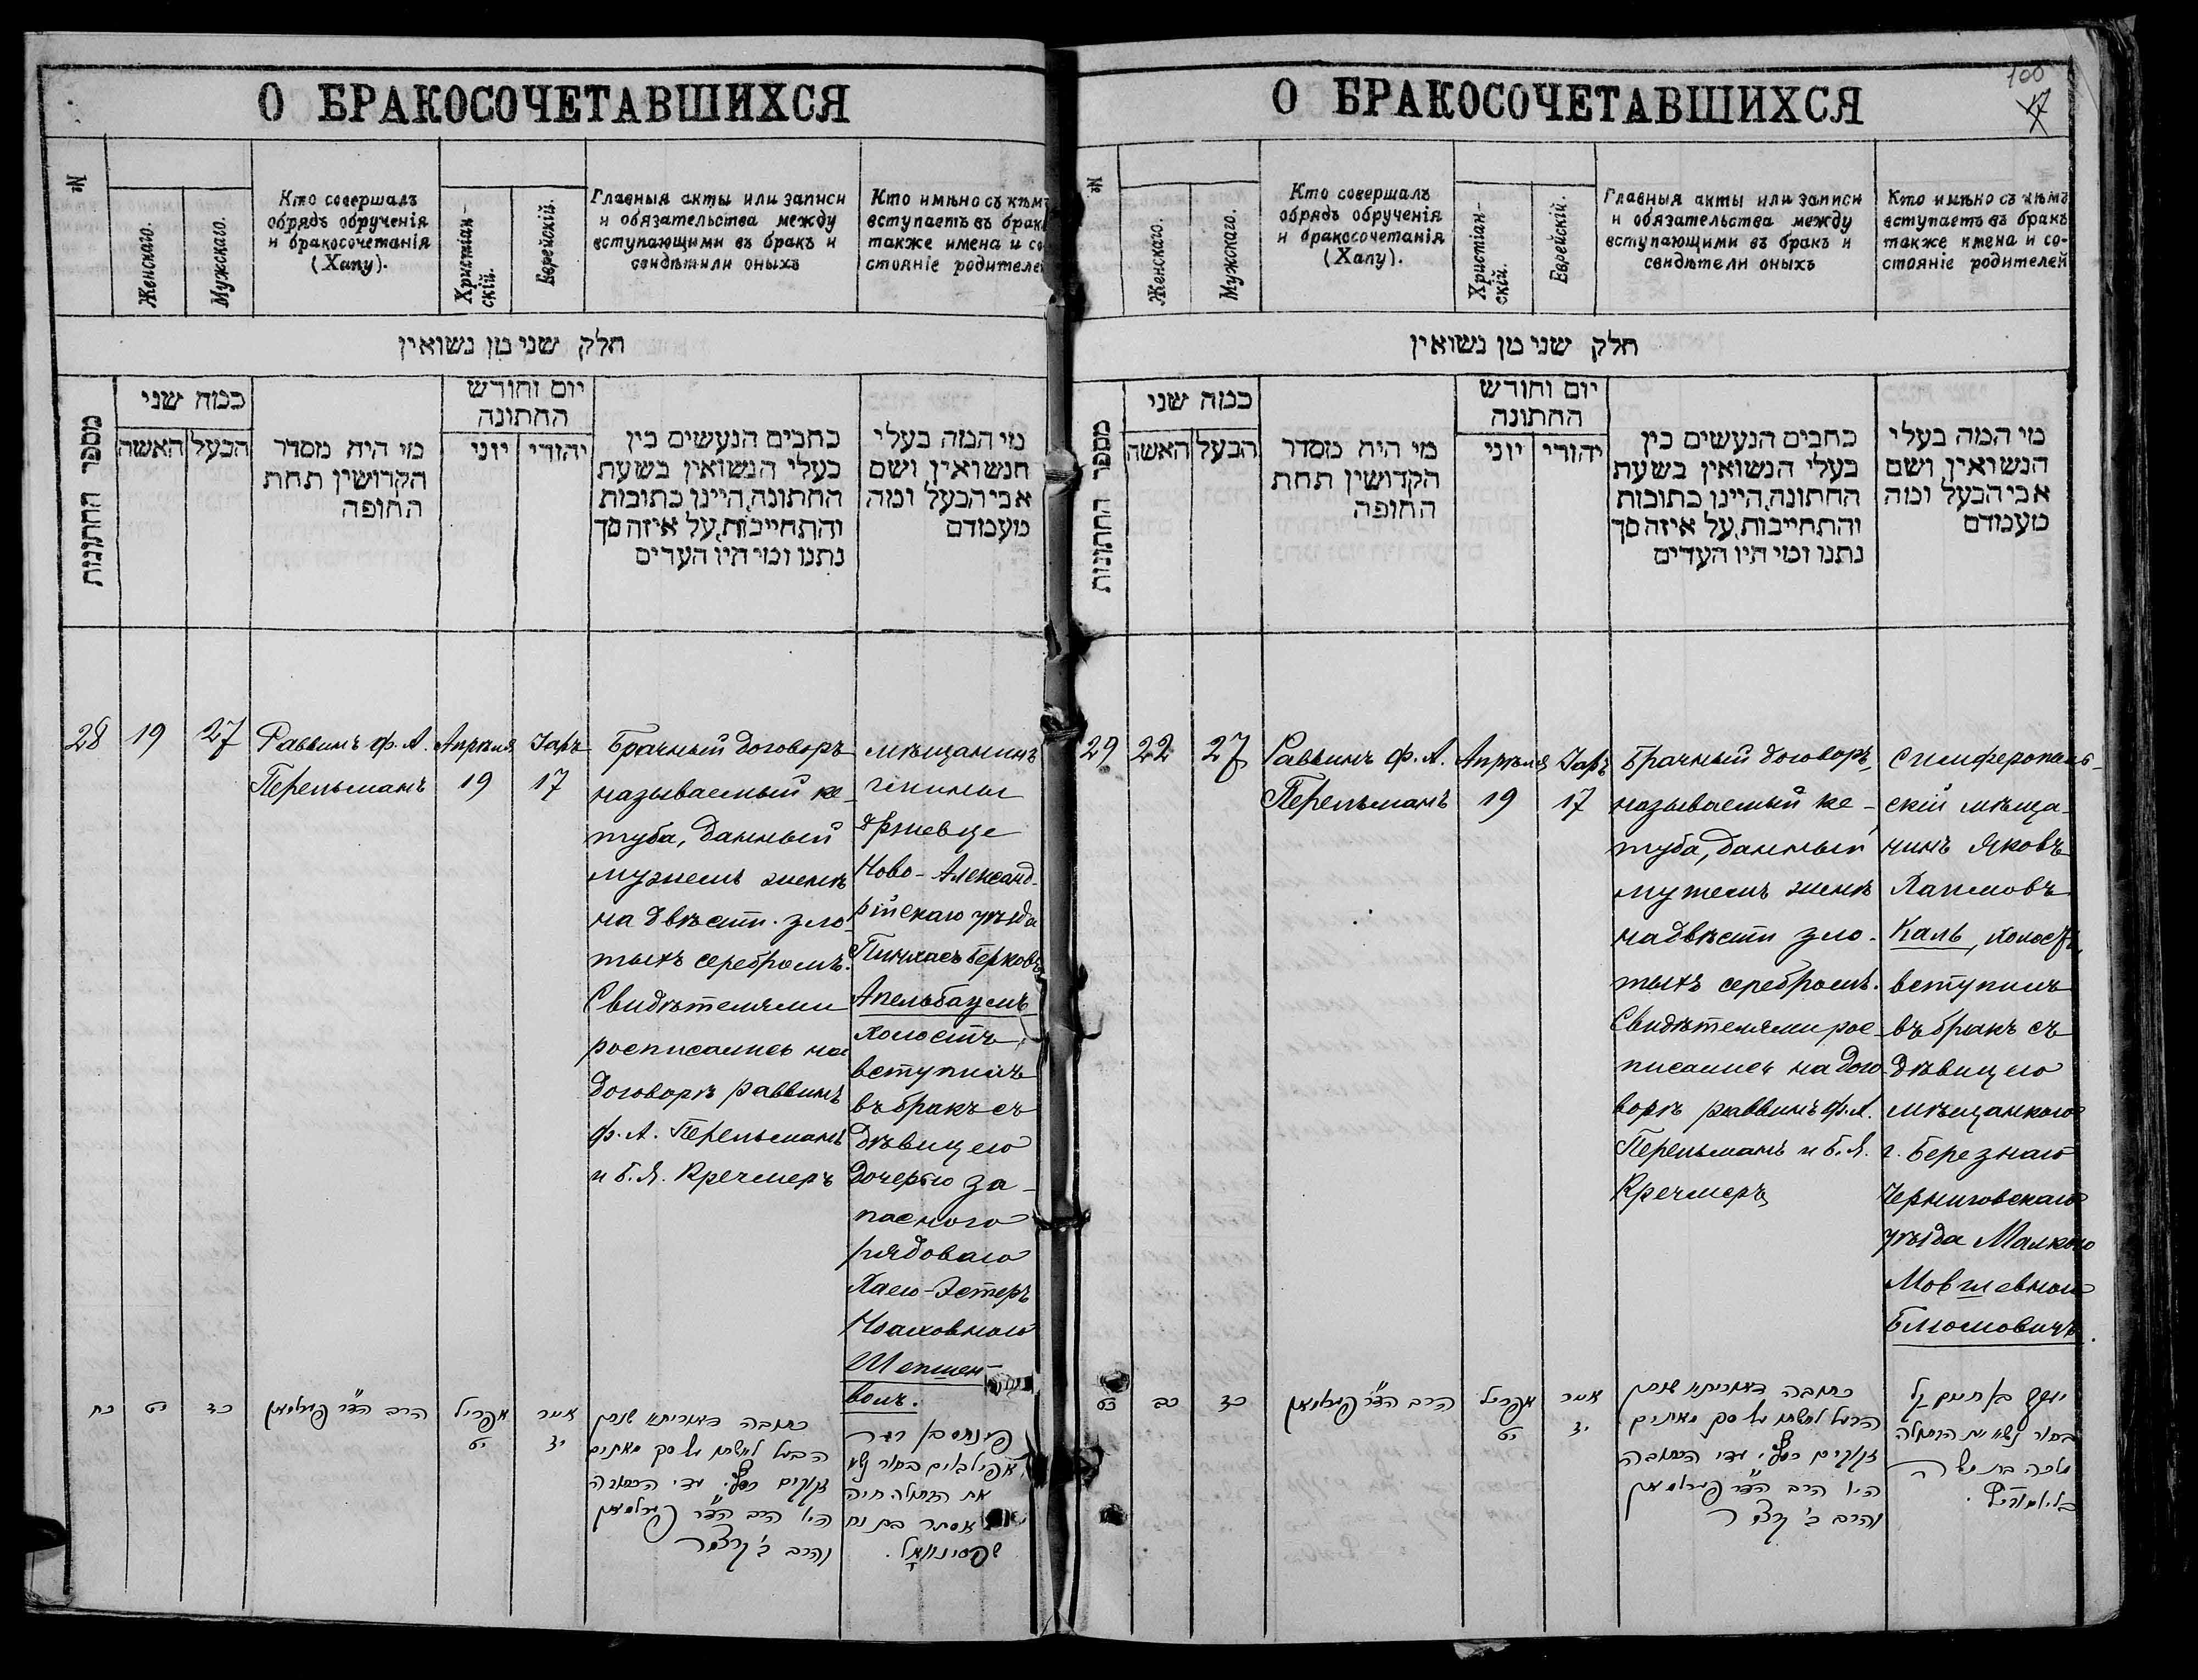 О БРАКОСОЧЕТАВШИХСЯ
№
Женскаго.
Мужскаго.
Кто совершалъ
обрядъ обрученія
и бракосочетанія
(Хапу).
Христіан-
скій.
Еврейскій.
Главныя акты или записи
и обязательства между
вступающими въ бракъ и
свидѣтили оныхъ
Кто имѣно съ кѣмъ
вступаетъ въ бракъ
также имена и со
стояніе родителей
חלק שני מן נשואין
מספר החתונות
כמה שני
האשה
הבעל
מי היה מסדר
הקדושין תחת
החופה
יום וחורש
החתונה
יוני
יהודי
כתבים הנעשים בין
בעלי הנשואין בשעת
החתונה, היינו כתובות
והתחייבות, על איזה סך
נתנו ומי היו העדים
מי המה בעלי
הנשואין ושם
אבי הבעל ומה
מעמדם
28
19
27
Раввинъ Ф. А.
Перельманъ
Апрѣля
19
Іаръ
17
Брачный договоръ
называемый ке-
туба, данный
мужемъ женѣ
на двѣсти зло-
тыхъ серебромъ.
Свидѣтелями
росписались на
договорѣ раввинъ
Ф. А. Перельманъ
и Б. Я. Кречмеръ
мѣщанинъ
гмины
Ново-Александ-
рійскаго уѣзда
Пинхасъ Берковъ
Апельбаумъ
холостъ,
вступилъ
въ бракъ съ
дѣвицею
дочерью за-
паснаго
рядоваго
Хаею-Эстеръ
Ноаховною
כח
יט
כז
הרב הד״ר פערלמאן
אפריל
יט
אייר
יז
כתובה דאורייתא שנתן
הבעל לאשתו על סך מאתים
זקוקים כסף. עדי הכתובה
היו הרב הד״ר פערלמאן
והרב ב' קרצמר
פינחס בן
את הבתולה חיה
אסתר בת נח
О БРАКОСОЧЕТАВШИХСЯ
100
№
Женскаго.
Мужскаго.
Кто совершалъ
обрядъ обрученія
и бракосочетанія
(Хапу).
Христіан-
скій.
Еврейскій.
Главныя акты или записи
и обязательства между
вступающими въ бракъ и
свидѣтели оныхъ
Кто имѣно съ кѣмъ
вступаетъ въ бракъ
также имена и со-
стояніе родителей
חלק שני מן נשואין
מספר החתונות
כמה שני
האשה
הבעל
מי היה מסדר
הקדושין תחת
החופה
יום וחורש
החתונה
יוני
יהודי
כתבים הנעשים בין
בעלי הנשואין בשעת
החתונה, היינו כתובות
והתחייבות, על איזה סך
נתנו ומי היו העדים
מי המה בעלי
הנשואין ושם
אבי הבעל ומה
מעמדם
29
22
27
Раввинъ Ф. А.
Перельманъ
Апрѣля
19
Іаръ
17
Брачный договоръ,
называемый ке-
туба, данный
мужемъ женѣ
на двѣсти зло-
тыхъ серебромъ.
Свидѣтелями рос-
писались на дого-
ворѣ раввинъ Ф. А.
Перельманъ и Б. Я.
Кречмеръ
Симферополь-
скій мѣща-
нинъ Яковъ
Хаимовъ
Каль, холостъ,
вступилъ
въ бракъ съ
дѣвицею
мѣщанкою
г. Березнаго
Черниговскаго
уѣзда Малкою
Мовшевною
Блюмовичъ.
כט
כב
כז
הרב הד״ר פערלמאן
אפריל
יט
אייר
יז
כתובה דאורייתא שנתן
הבעל לאשתו על סך מאתים
זקוקים כסף. עדי הכתובה
היו הרב הד״ר פערלמאן
והרב ב' קרצמר
יעקב בן חיים קל
בחור נשא את הבתולה
מלכה בת משה
בליומוויץ.